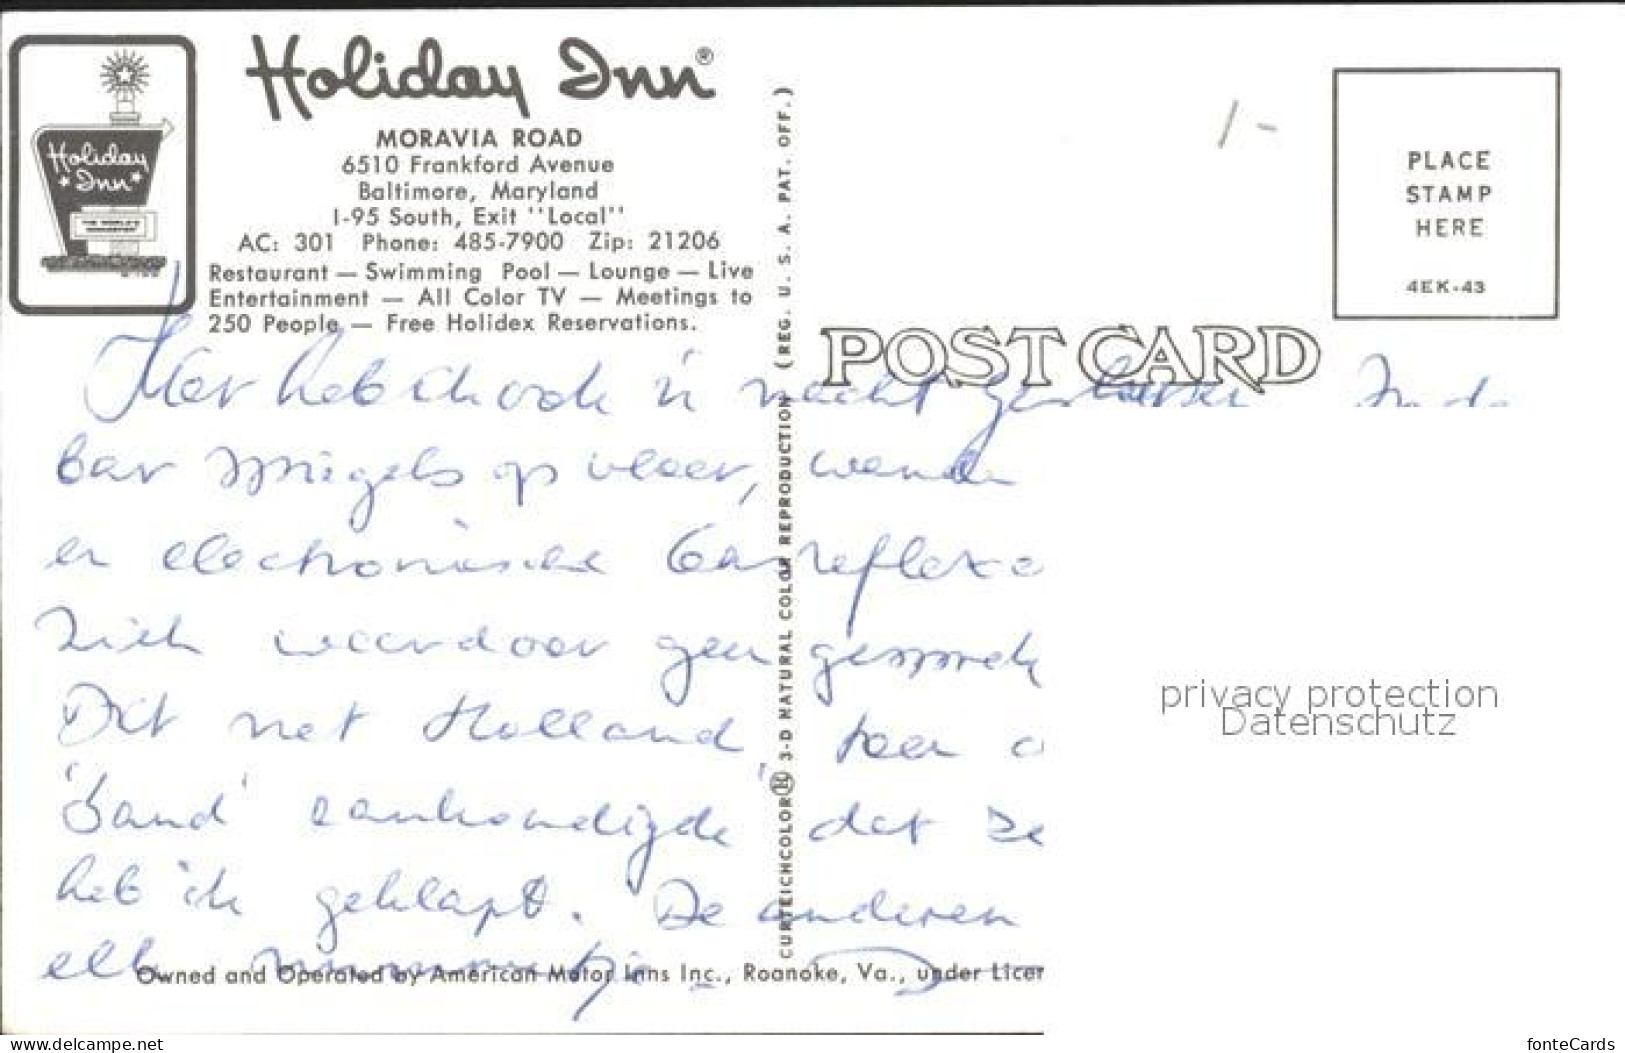 Holiday Inn®
MORAVIA ROAD
6510 Frankford Avenue
Baltimore, Maryland
I-95 South, Exit "Local"
AC: 301 Phone: 485-7900 Zip: 21206
Restaurant — Swimming Pool — Lounge — Live
Entertainment — All Color TV — Meetings to
250 People — Free Holidex Reservations.
Holiday
Inn
PLACE
STAMP
HERE
4EK-43
POST CARD
1-
CURTEICHCOLOR® 3-D NATURAL COLOR REPRODUCTION (REG. U. S. A. PAT. OFF.)
Hier heb ik ook 'n nacht geslapen In de
bar spiegels op vloer, wanden
en electronische
waardoor geen gesprek
Dit net Holland, toen
'band' aankondigde dat ze
heb ik geklapt. De anderen
elk
Owned and Operated by American Motor Inns Inc., Roanoke, Va., under Licen
privacy protection
Datenschutz
www.delcampe.net
fonteCards